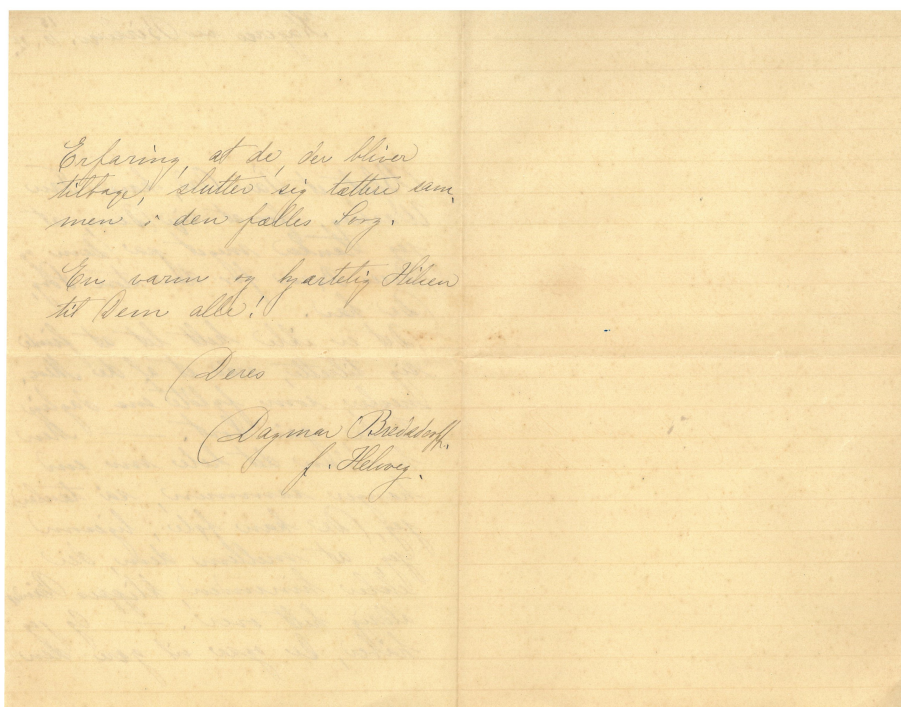 Erfaring, at de, der bliver
tilbage, slutter sig tættere sam-
men i den fælles Sorg.
En varm og hjærtelig Hilsen
til Dem alle!
Deres
Dagmar Bredsdorff.
f. Helweg.